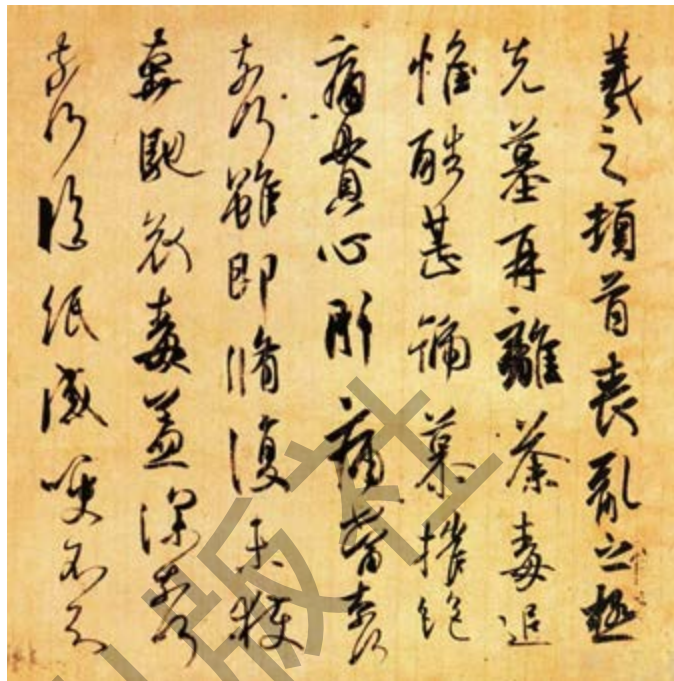 羲之頓首喪亂之極
先墓再離荼毒追
惟酷甚號慕摧絶
痛貫心肝痛當奈何
奈何雖即脩復未獲
奔馳哀毒益深奈何
奈何臨紙感哽不知
版社